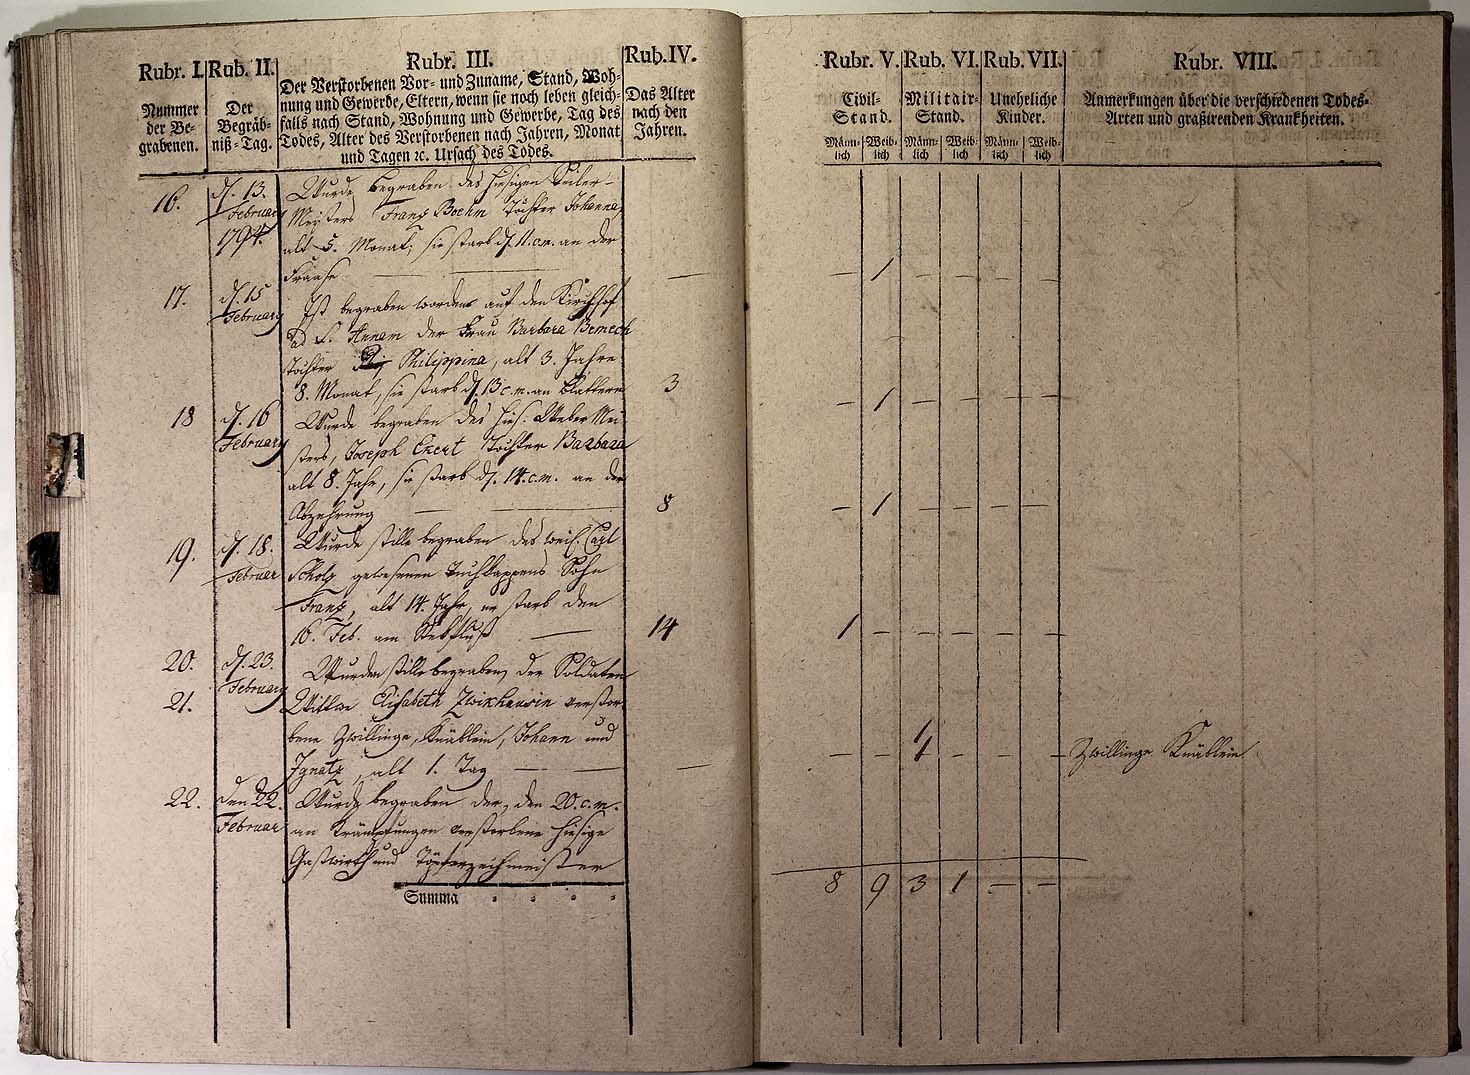 Rubr. I.
Nummer
der Be-
grabenen.
Rub. II.
Der
Begräb-
niß-Tag.
Rubr. III.
Der Verstorbenen Vor- und Zuname, Stand, Woh-
nung und Gewerbe, Eltern, wenn sie noch leben gleich-
falls nach Stand, Wohnung und Gewerbe, Tag des
Todes, Alter des Verstorbenen nach Jahren, Monat
und Tagen ꝛc. Ursach des Todes.
Rub. IV.
Das Alter
nach den
Jahren.
16.
d. 13.
February
1794.
Wurde begraben des hiesigen Seiler-
Meisters Franz Boehm Tochter Johanna,
alt 5. Monat, sie starb d. 11. c. m. an der
Fraase — —
—
17.
d. 15
February
Ist begraben worden auf den Kirchhof
ad S. Annam der Frau Barbara Bemech
Tochter Philippina, alt 3. Jahre
8. Monat, sie starb d. 13 c. m. an Blattern
3
18
d. 16
February
Wurde begraben des hies. Weber Mei-
sters, Joseph Exert Tochter Barbara
alt 8. Jahr, sie starb d. 14. c. m. an der
Abzehrung — —
8
19.
d. 18.
Februar
Wurde stille begraben des weil. Carl
Scholz gewesenen Tuchkappers Sohn
Franz, alt 14. Jahr, er starb den
16. Feb. am Stekfluß —
14
20.
d. 23.
February
Wurden stille begraben, der Soldaten
21.
Wittwe Elisabeth Zwikhausin verstor-
bene Zwillinge, Knäblein, Johann und
Ignatz, alt 1. Tag — —
—
22.
den 22.
Februar
Wurde begraben der, den 20. c. m.
an Krämpfungen verstorbene hiesige
Gastwirth und
Summa
Rubr. V.
Civil-
Stand.
Männ-
lich
Weib-
lich
Rub. VI.
Militair-
Stand.
Männ-
lich
Weib-
lich
Rub. VII.
Unehrliche
Kinder.
Männ-
lich
Weib-
lich
Rubr. VIII.
Anmerkungen über die verschiedenen Todes-
Arten und graßirenden Krankheiten.
— 1 — — — —
— 1 — — — —
— 1 — — — —
1 — — — — —
Zwillinge Knäblein
8 9 3 1 — —